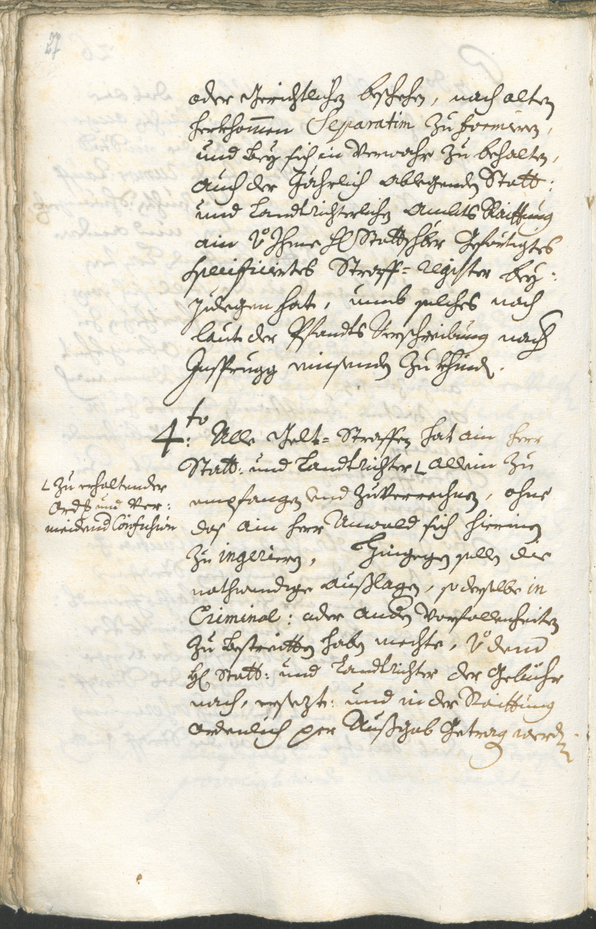 27
oder Gerichtlichen beschehen, nach alten
herkhommen Separatim zu formieren,
und bey sich in Verwahr zu behalten,
auch der Jährlich ablegenden Statt:
und Landtrichterlichen Ambts Raittung
ain Herr Stattschreiber gefertigtes
specificiertes Straff= register bey:
zulegen hat, umb solches noch
laut der Pfandts Verschreibung nach
Insprugg einsenden zu khinden.
4.to Alle Gelt= Straffen hat ain Herr
Statt: und Landtrichter allein zu
empfangen und zuverrechnen, ohne
das ain Herr Anwald sich hierinn
zu ingerieren, Hingegen sollen die
nothwendige außlagen, so derselbe in
Criminal: oder andern Vorfallenheiten
zu bestreitten haben mechte, dem
H: Statt: und Landtrichter der Gebühr
nach, ersezt: und in der Raittung
ordenlich per Außgab getragen werden.
zu erhaltender
Ordt und Ver:
meidend Confusion